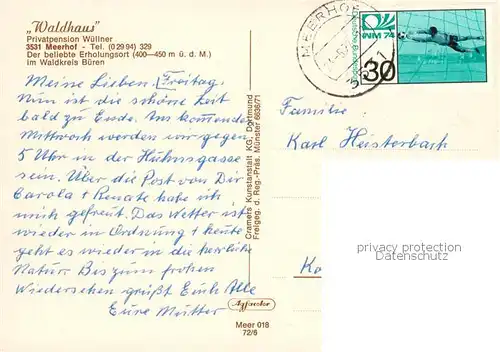 „Waldhaus"
Privatpension Wüllner
3531 Meerhof - Tel. (0 29 94) 329
Der beliebte Erholungsort (400—450 m ü. d. M.)
im Waldkreis Büren
Meine Lieben. Freitag.
Nun ist die schöne Zeit
bald zu Ende. Am kommenden
Mittwoch werden wir gegen
5 Uhr in der Hühnsgasse
sein. Über die Post von Dir
Carola + Renate habe ich
mich gefreut. Das Wetter ist
wieder in Ordnung + heute
geht es wieder in die herrliche
Natur. Bis zum frohen
Wiedersehen grüßt Euch Alle
Eure Mutter
Agfacolor
Meer 018
72/6
Cramers Kunstanstalt KG, Dortmund
Freigeg. d. Reg.-Präs. Münster 6636/71
MEERHOF
Deutsche Bundespost
WM 74
30
Familie
Karl Heisterbach
Ko
privacy protection
Datenschutz